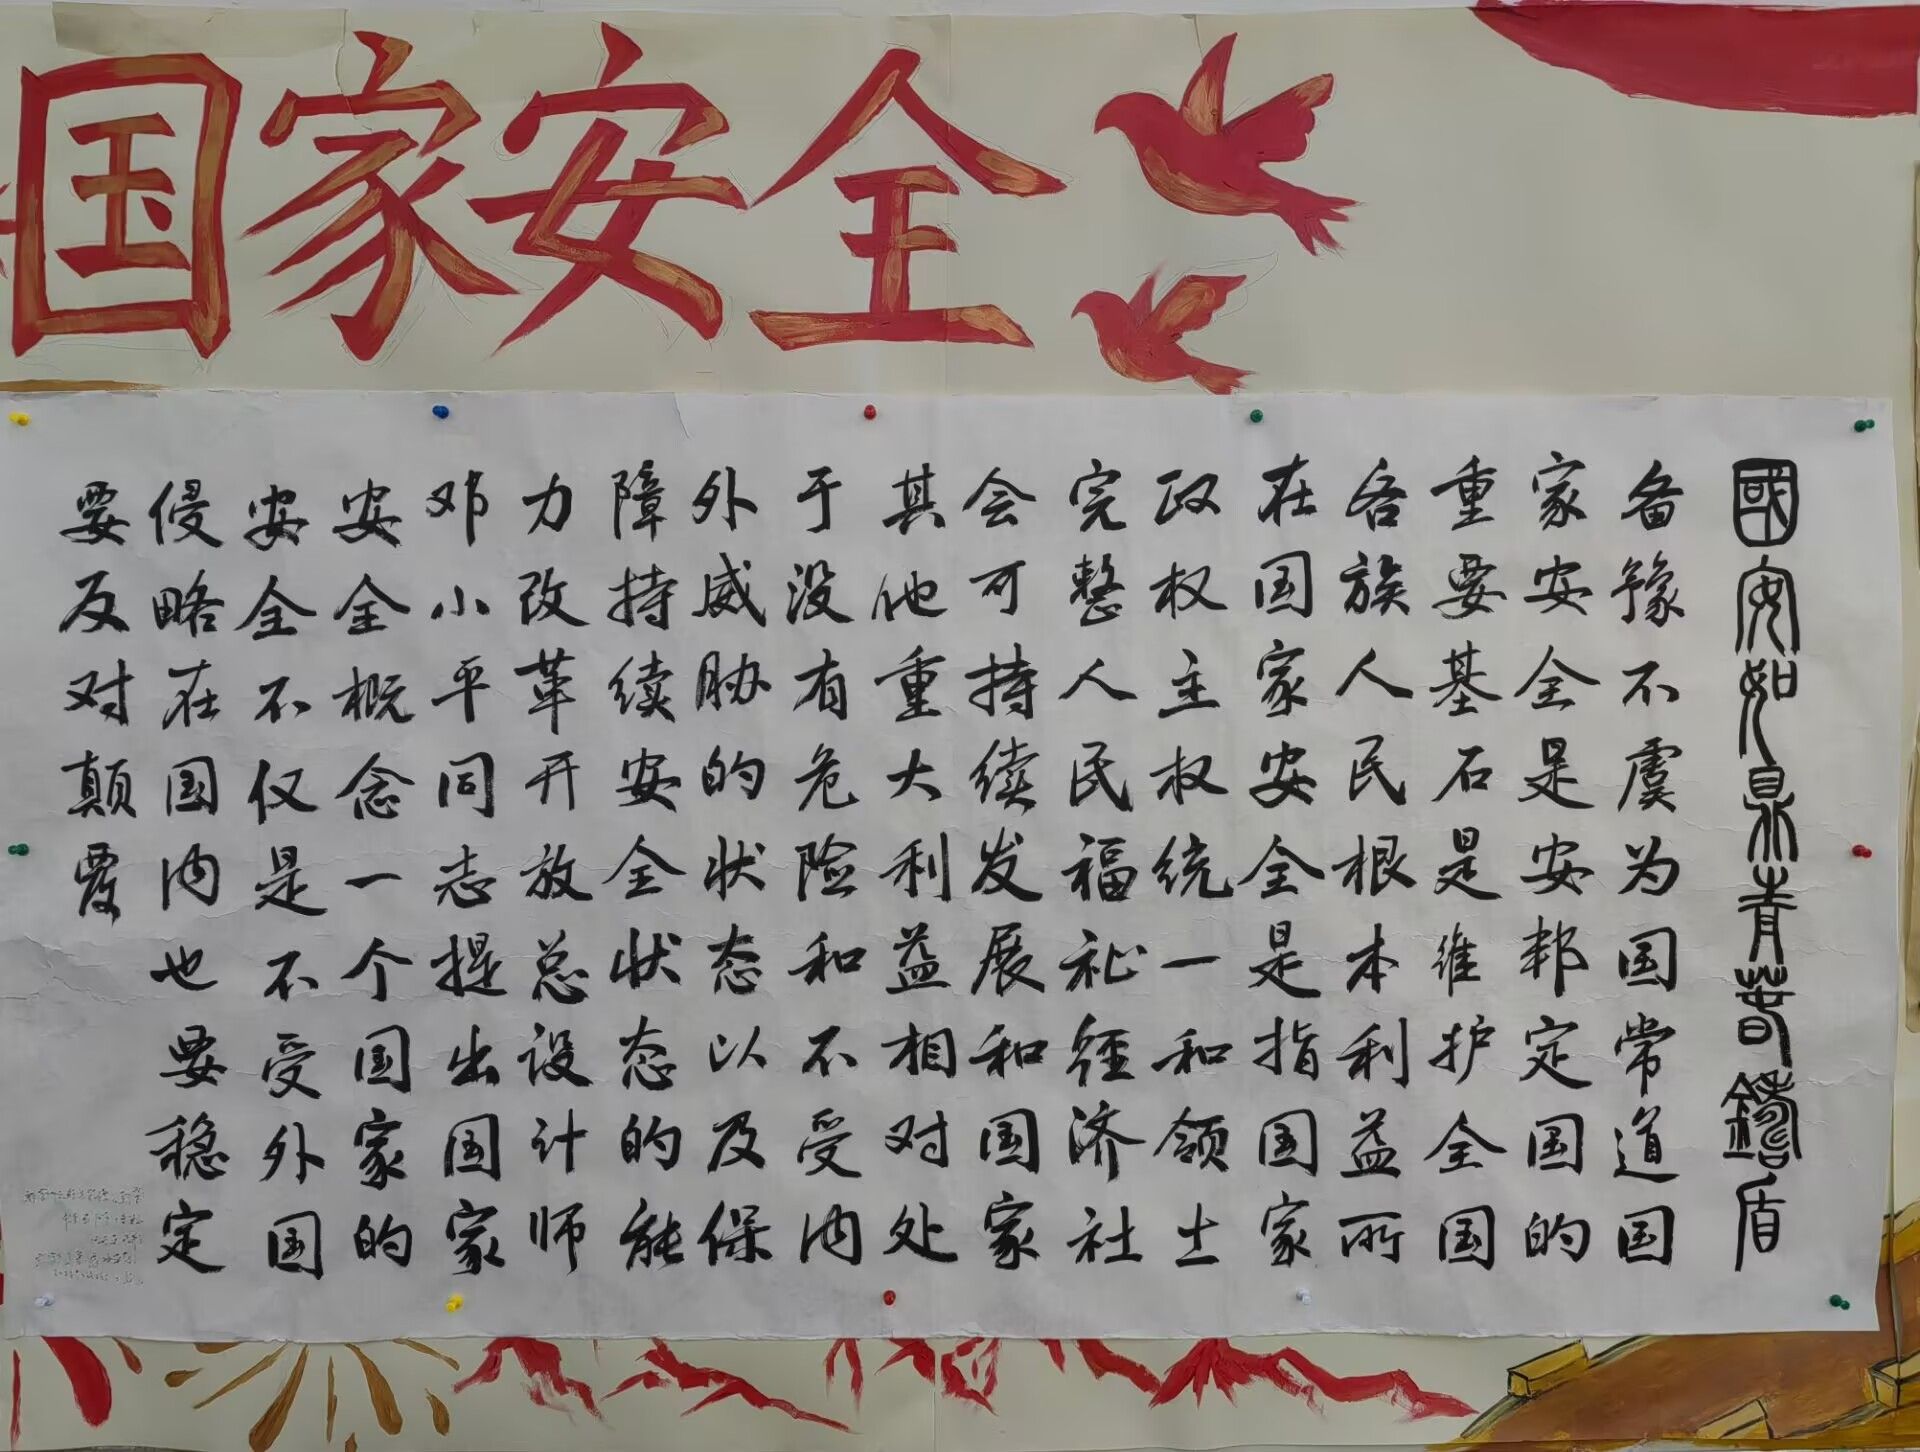 国家安全
國安如鼎青春鑄盾
备豫不虞为国常道国
家安全是安邦定国的
重要基石是维护全国
各族人民根本利益所
在国家安全是指国家
政权主权统一和领土
完整人民福祉经济社
会可持续发展和国家
其他重大利益相对处
于没有危险和不受内
外威胁的状态以及保
障持续安全状态的能
力改革开放总设计师
邓小平同志提出国家
安全概念一个国家的
安全不仅是不受外国
侵略在国内也要稳定
要反对颠覆